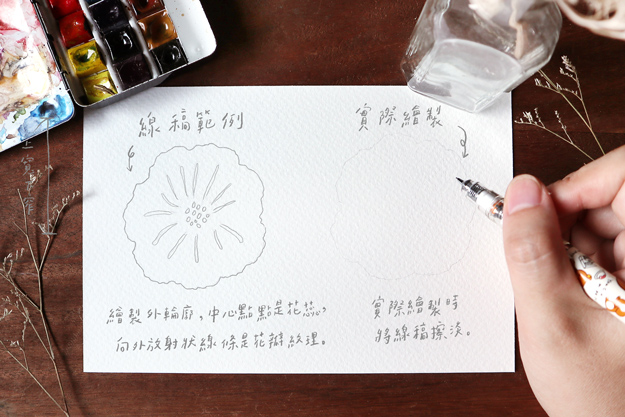 線稿範例
實際繪製
繪製外輪廓，中心點點是花蕊，
向外放射狀線條是花瓣紋理。
實際繪製時
將線稿擦淡。